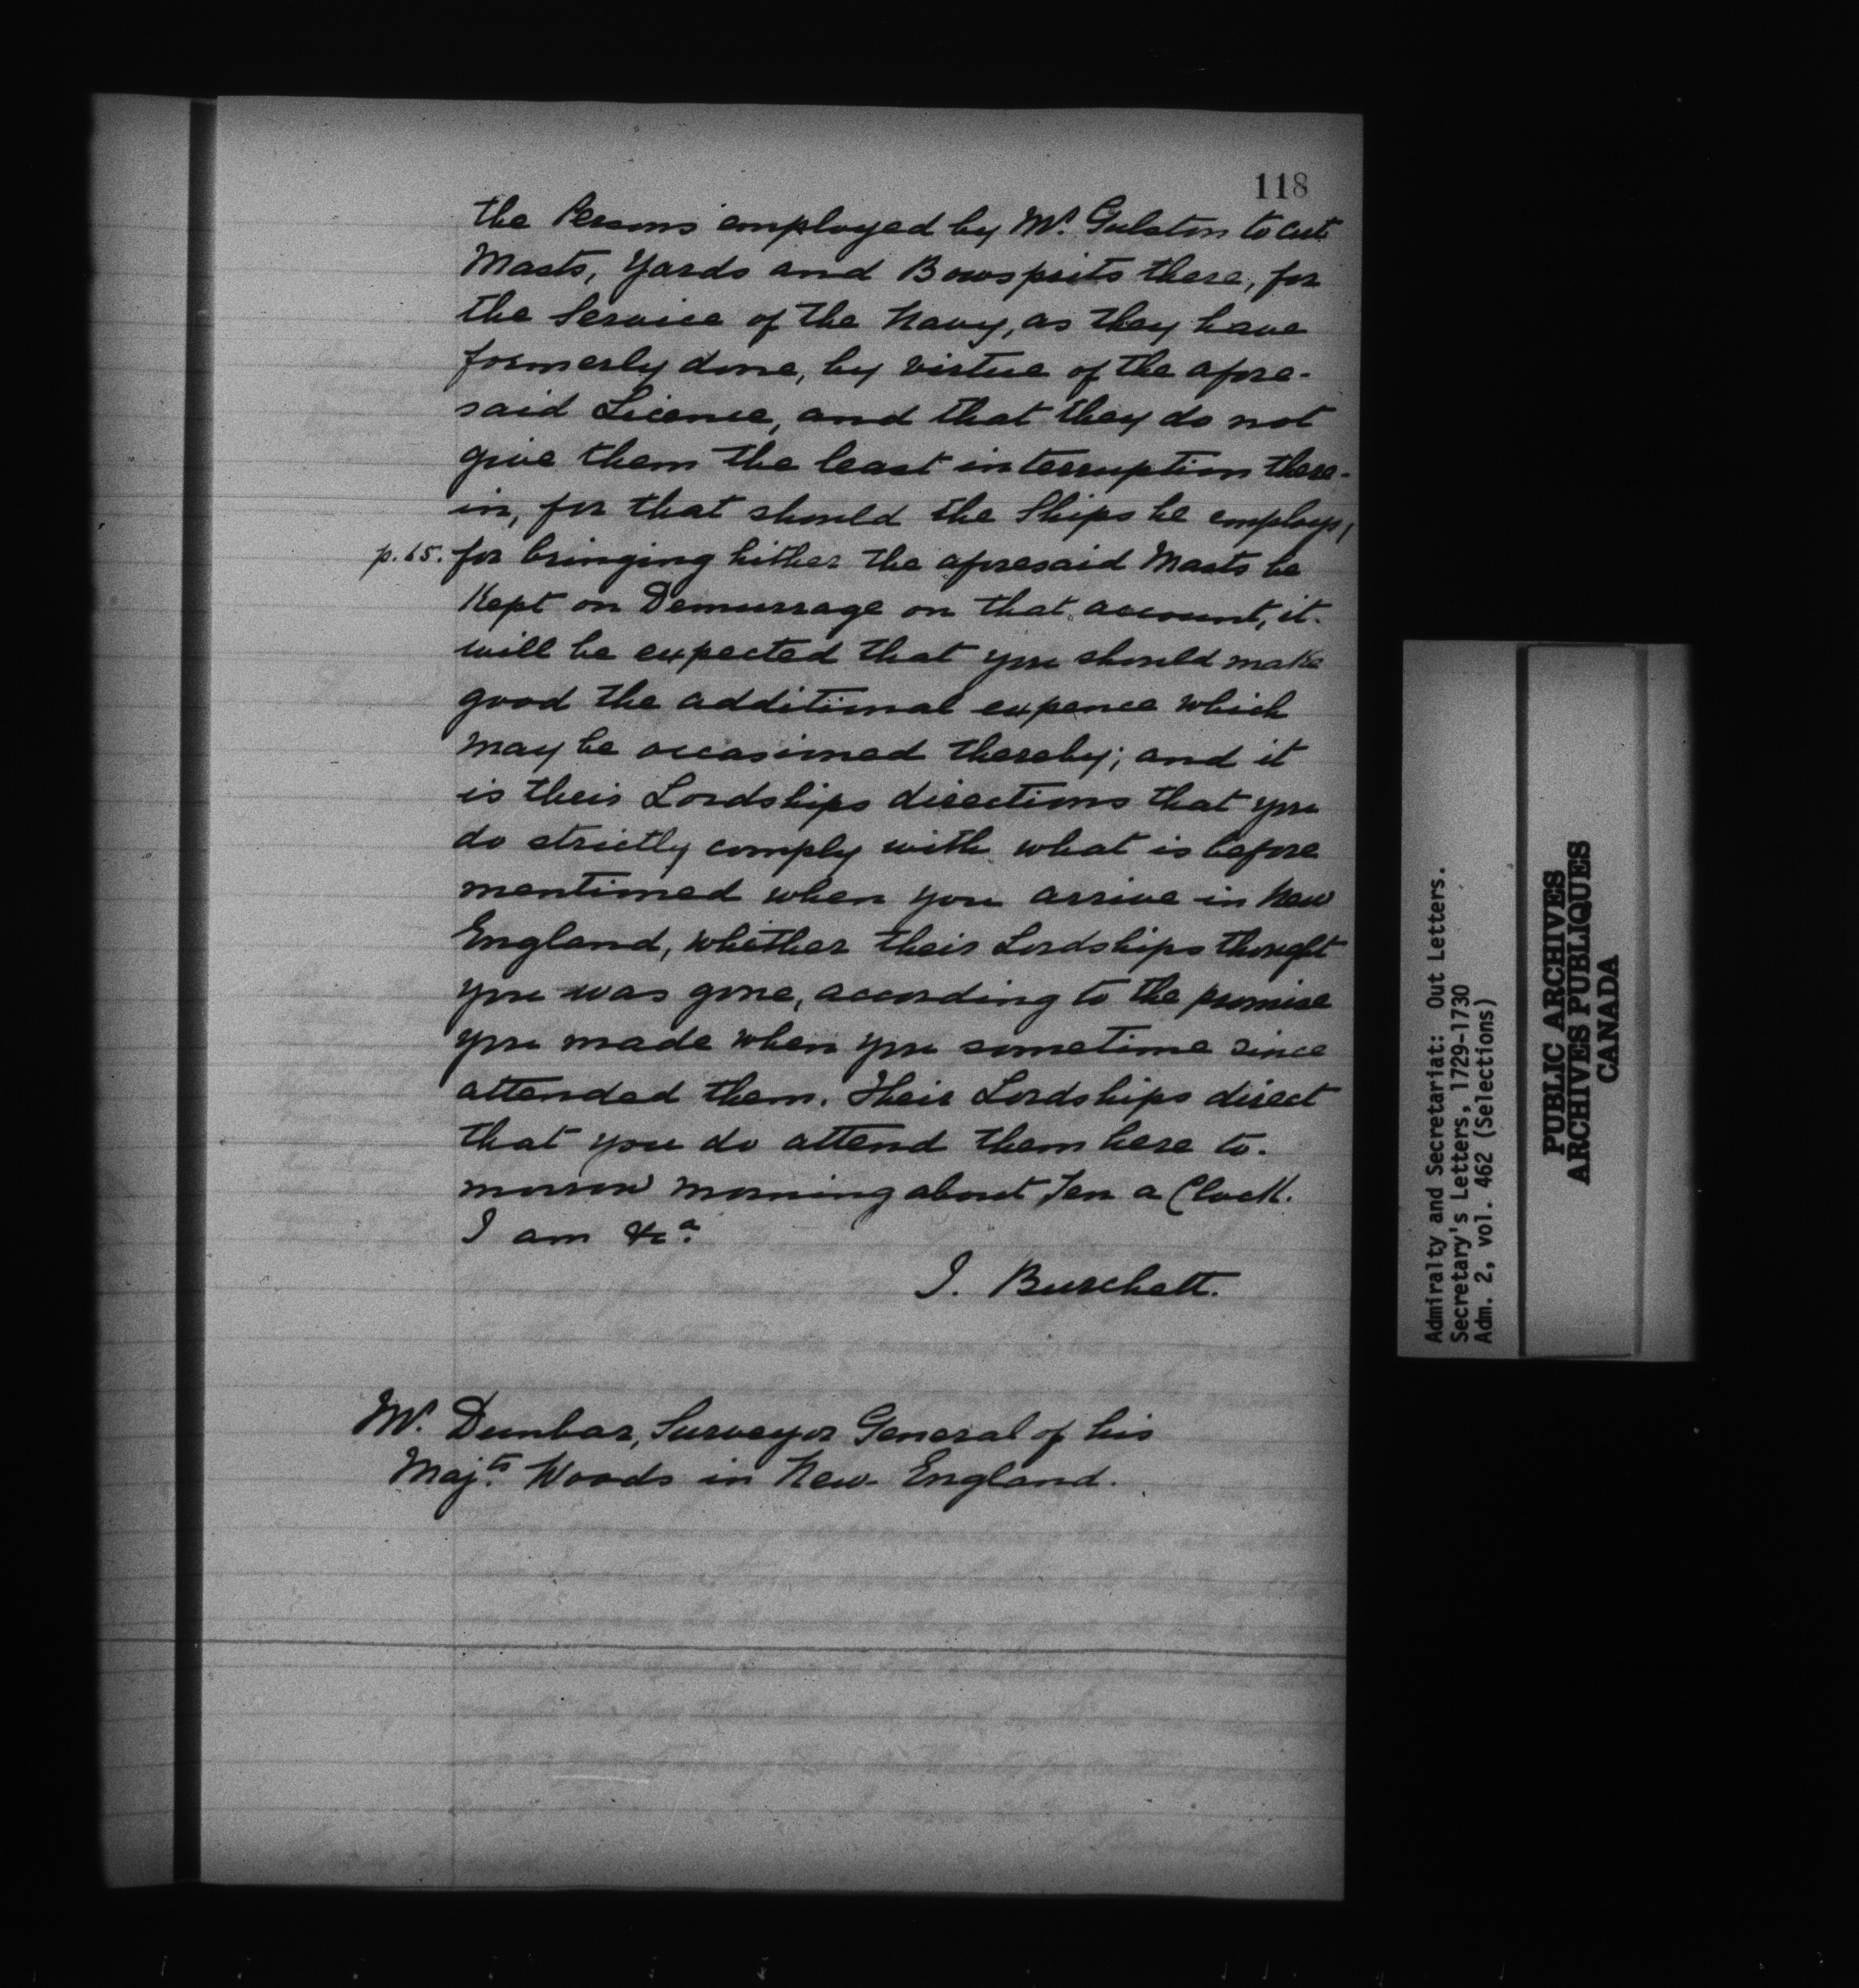 118
the Persons employed by Mr. Gulston to cut
Masts, Yards and Bowsprits there, for
the Service of the Navy, as they have
formerly done, by virtue of the afore-
said Licence, and that they do not
give them the least interruption there-
in, for that should the Ships he employs,
p. 65. for bringing hither the aforesaid Masts be
Kept on Demurrage on that account, it
will be expected that you should make
good the additional expence which
may be occasioned thereby; and it
is their Lordships directions that you
do strictly comply with what is before
mentioned when you arrive in New
England, whether their Lordships thought
you was gone, according to the promise
you made when you sometime since
attended them. Their Lordships direct
that you do attend them here to-
morrow morning about Ten a Clock.
I am &ca.
J. Burchett.
Mr. Dunbar, Surveyor General of his
Majts. Woods in New England.
Admiralty and Secretariat: Out Letters.
Secretary's Letters, 1729-1730
Adm. 2, vol. 462 (Selections)
PUBLIC ARCHIVES
ARCHIVES PUBLIQUES
CANADA